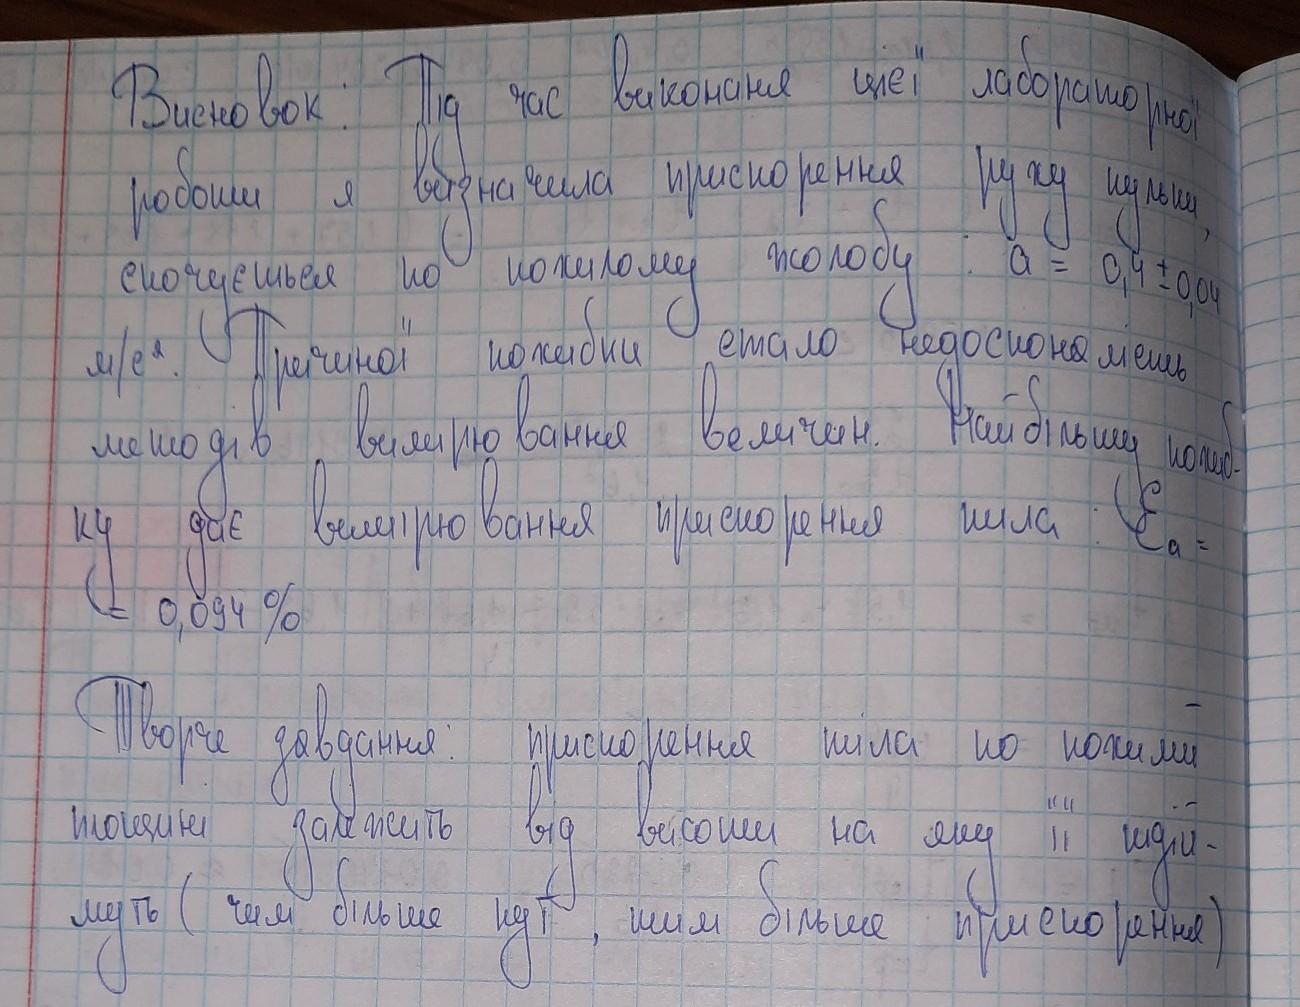 Висновок: Під час виконання цієї лабораторної
роботи я визначила прискорення руху кульки,
скочується по похилому жолобу : a = 0,4 ± 0,04
м/с². Причиної похибки стало недосконалість
методів вимірювання величин. Найбільшу похиб-
ку дає вимірювання прискорення тіла : Ɛa =
= 0,094 %
Творче завдання: прискорення тіла по похилій
площині залежить від висоти на яку її підій-
муть ( чим більше кут , тим більше прискорення)